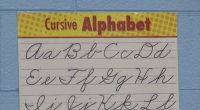 Cursive Alphabet
Aa Bb Cc Dd
Ee Ff Gg Hh
Ii Jj Kk Ll